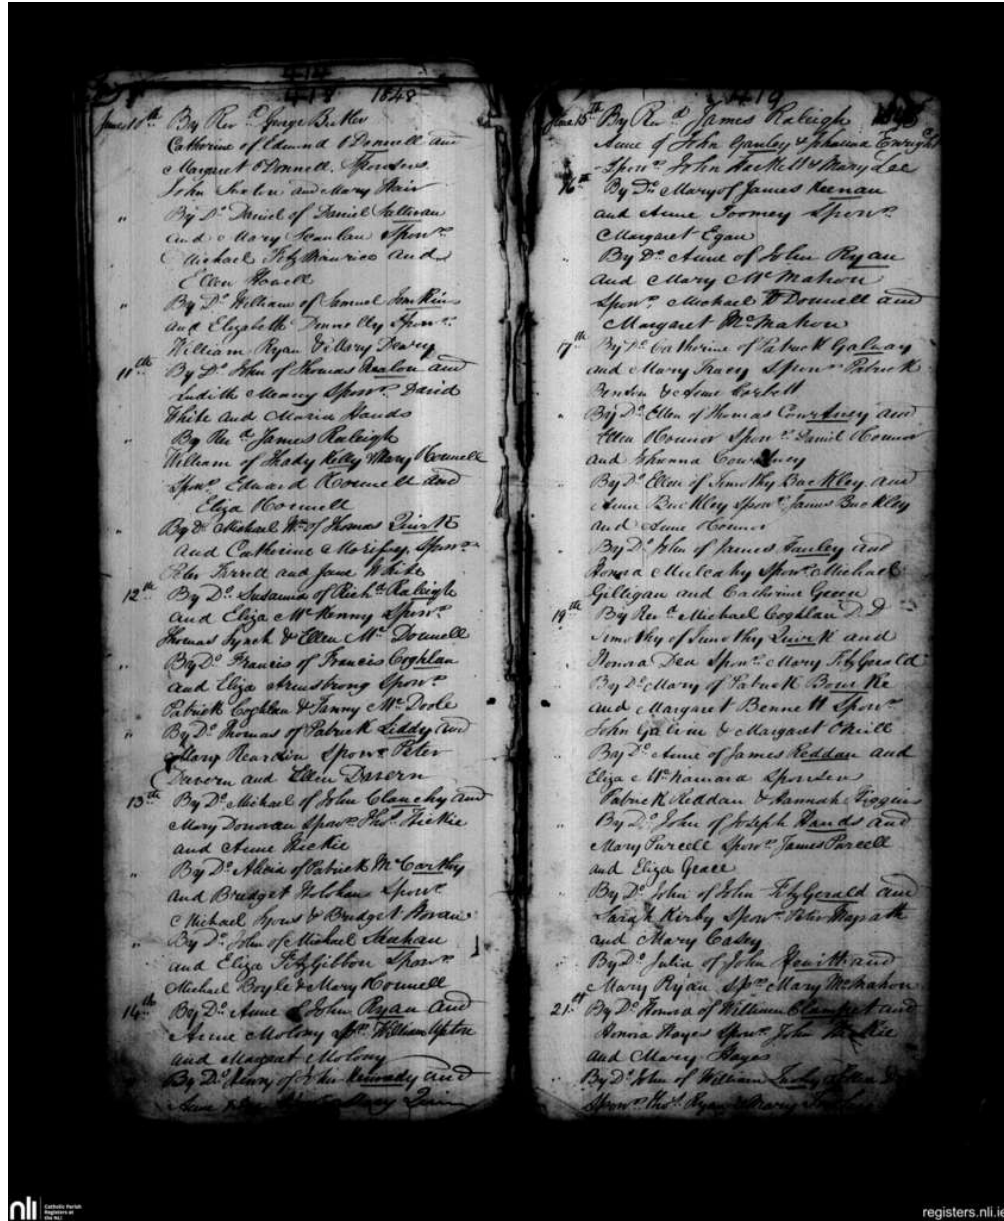 418 1848
June 10th By Revd George Butler
Catherine of Edmund O'Donnell and
Margaret O'Donnell. Sponsors.
John and Mary
" By Do Daniel of Daniel Sullivan
and Mary Scanlan Sponrs
Michael FitzMaurice and
Ellen Howell
" By Do William of Samuel Tomkins
and Elizabeth Donnelly Sponrs
William Ryan & Mary Deary
11th By Do John of Thomas and
Judith Meany Sponrs David
White and Maria Hands
" By Revd James Raleigh
William of Thady Kelly & Mary Connell
Sponrs Edward Connell and
Eliza Connell
By Do Michael Wm of Thomas Quirk
and Catherine Sponrs
Peter Farrell and Jane White
12th By Do Susanna of Richd Raleigh
and Eliza McKenny Sponrs
Thomas Lynch & Ellen McDonnell
" By Do Francis of Francis Coghlan
and Eliza Armstrong Sponrs
Patrick Coghlan & Fanny McDoole
" By Do Thomas of Patrick Liddy and
Mary Reardin Sponrs Peter
Davern and Ellen Davern
13th By Do Michael of John Clanchy and
Mary Donovan Sponrs Thos Hickie
and Anne Hickie
" By Do Alicia of Patrick McCarthy
and Bridget Holohan Sponrs
Michael Lyons & Bridget Horan
" By Do John of Michael Sheehan
and Eliza FitzGibbon Sponrs
Michael Boyle & Mary Connell
14th By Do Anne of John Ryan and
Anne Molony Sprs William Upton
and Margaret Molony
By Do Henry of John Kennedy and
Anne Mary Quin
419 1848
June 15th By Revd James Raleigh
Anne of John Ganley & Johanna Enright
Sponrs John Hackett & Mary Lee
16th By Do Mary of James Keenan
and Anne Toomey Sponrs
Margaret Egan
" By Do Anne of John Ryan
and Mary McMahon
Sponrs Michael O'Donnell and
Margaret McMahon
17th By Do Catherine of Patrick Galway
and Mary Tracy Sponrs Patrick
Benson & Anne Corbett
" By Do Ellen of Thomas Courtney and
Ellen Connor Sponrs Daniel Connor
and Johanna Courtney
" By Do Ellen of Timothy Buckley and
Anne Buckley Sponrs James Buckley
and Anne Connor
" By Do John of James Fauley and
Honora Mulcahy Sponrs Michael
Gilligan and Catherine Green
19th By Revd Michael Coghlan D.D
Timothy of Timothy Quirk and
Honora Dea Sponrs Mary FitzGerald
" By Do Mary of Patrick Bourke
and Margaret Bennett Sponrs
John Galvin & Margaret O'Neill
" By Do Anne of James Reddan and
Eliza McNamara Sponsors
Patrick Reddan & Hannah Figgins
" By Do John of Joseph Hands and
Mary Purcell Sponrs James Purcell
and Eliza Grace
" By Do John of John FitzGerald and
Sarah Kirby Sponrs Peter Magrath
and Mary Casey
" By Do Julia of John Hewitt and
Mary Ryan Sprs Mary McMahon
21st By Do Honora of William Clampet and
Honora Hayes Sponrs John
and Mary Hayes
" By Do John of William & Ellen
Sponrs Thos Ryan & Mary
nli
Catholic Parish
Registers at
the NLI
registers.nli.ie